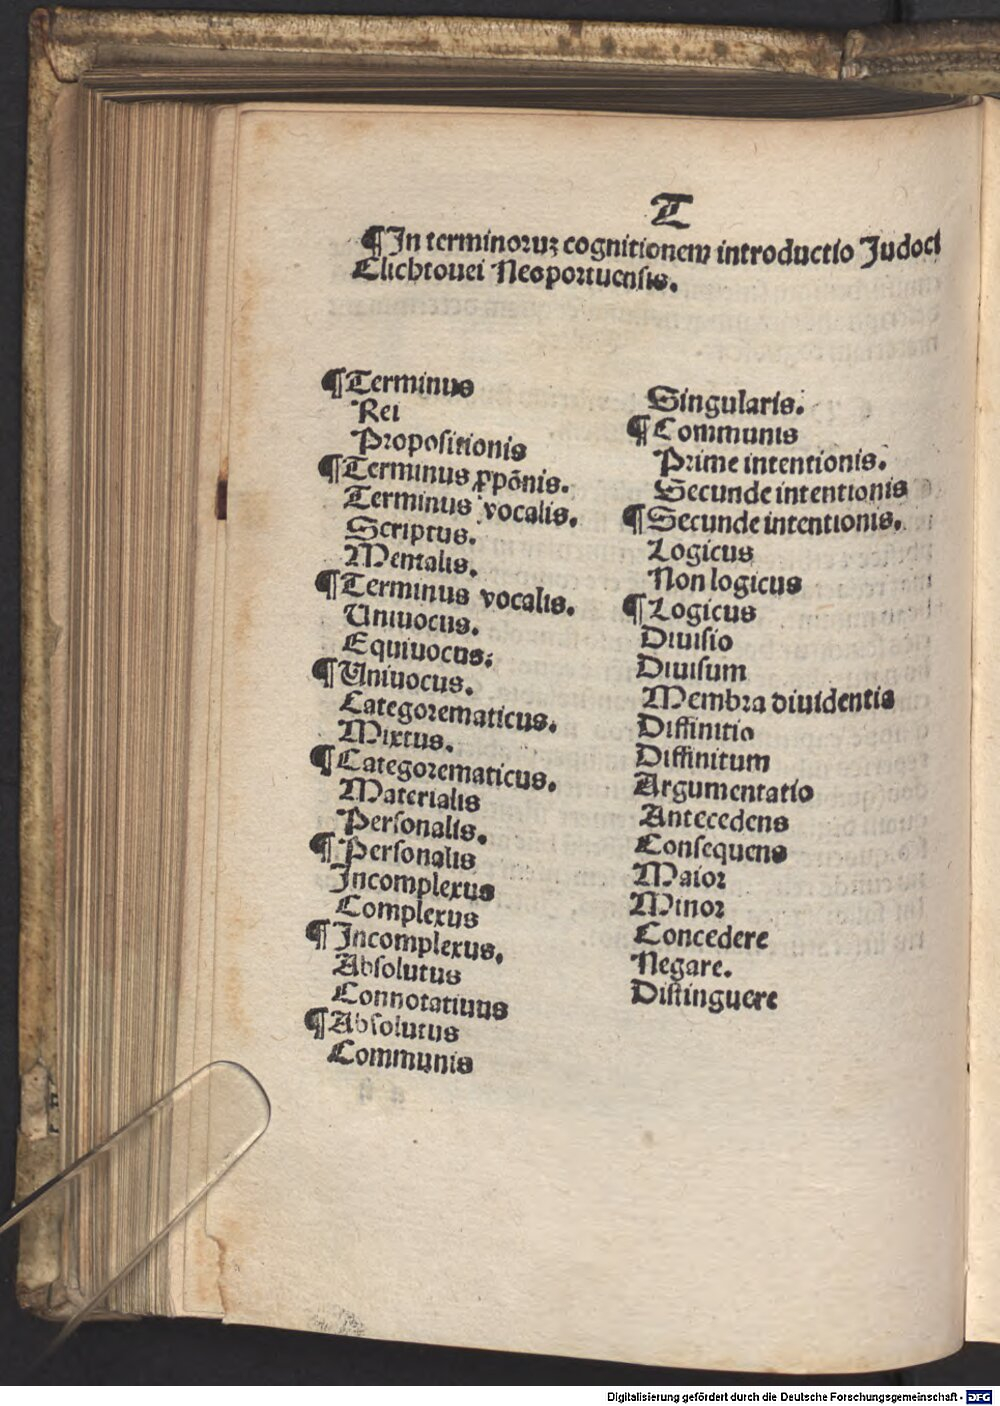 T
¶In terminoruꝫ cognitionem introductio Judoci
Clichtouei Neoportuensis.
¶Terminus
Rei
Propositionis
¶Terminus ꝓpōnis.
Terminus vocalis.
Scriptus.
Mentalis.
¶Terminus vocalis.
Uniuocus.
Equiuocus.
¶Uniuocus.
Categorematicus.
Mixtus.
¶Categorematicus.
Materialis
Personalis.
¶Personalis
Incomplexus
Complexus
¶Incomplexus.
Absolutus
Connotatiuus
¶Absolutus
Communis
Singularis.
¶Communis
Prime intentionis.
Secunde intentionis
¶Secunde intentionis.
Logicus
Non logicus
¶Logicus
Diuisio
Diuisum
Membra diuidentia
Diffinitio
Diffinitum
Argumentatio
Antecedens
Consequens
Maior
Minor
Concedere
Negare.
Distinguere
Digitalisierung gefördert durch die Deutsche Forschungsgemeinschaft - DFG